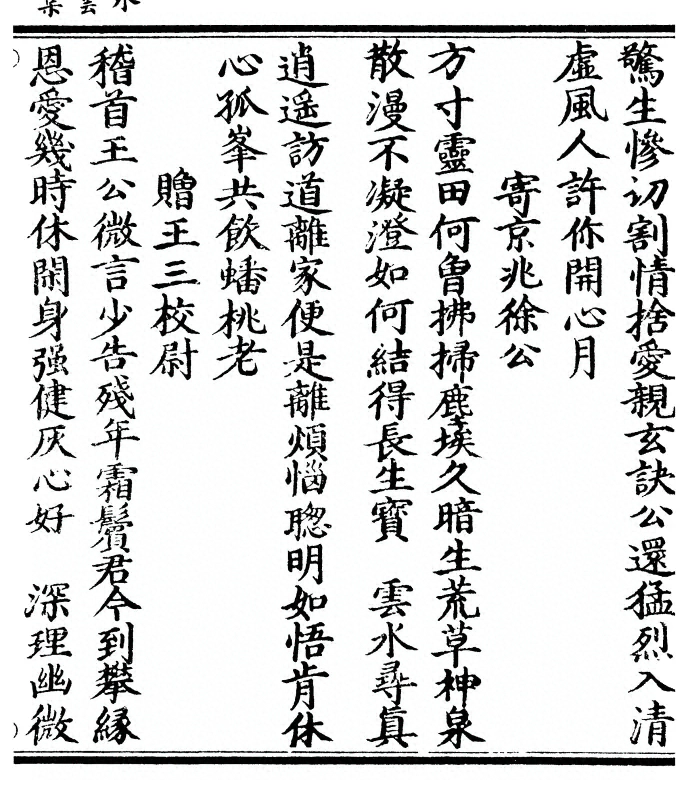 驚生慘切割情捨愛親玄訣公還猛烈入清
虛風人許你開心月
寄京兆徐公
方寸靈田何曾拂掃塵埃久暗生荒草神泉
散漫不凝澄如何結得長生寶　雲水尋真
逍遥訪道離家便是離煩惱聰明如悟肯休
心孤峯共飲蟠桃老
贈王三校尉
稽首王公微言少告殘年霜鬢君今到攀緣
恩愛幾時休閑身强健灰心好　深理幽微